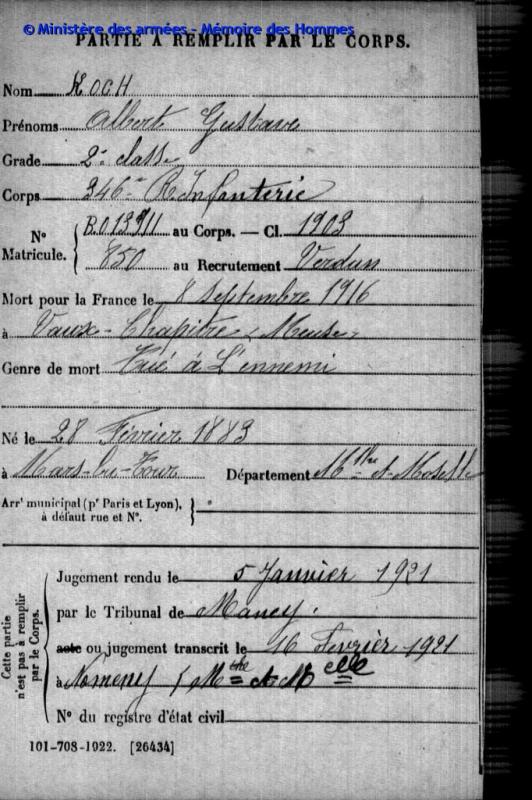 © Ministère des armées - Mémoire des Hommes
PARTIE À REMPLIR PAR LE CORPS.
Nom KOCH
Prénoms Albert Gustave
Grade 2e classe
Corps 346e R. Infanterie
N° Matricule. { R.013911 au Corps. — Cl. 1903
850 au Recrutement Verdun
Mort pour la France le 8 septembre 1916
à Vaux-Chapitre (Meuse)
Genre de mort Tué à l'ennemi
Né le 28 Février 1883
à Mars-la-Tour Département Mthe et Moselle
Arrt municipal (pr Paris et Lyon), à défaut rue et N°. }
Cette partie n'est pas à remplir par le Corps. {
Jugement rendu le 5 Janvier 1921
par le Tribunal de Nancy.
acte ou jugement transcrit le 16 Fevrièr 1921
à Nomeny (Mthe et Melle
N° du registre d'état civil
101-708-1922. [26434]